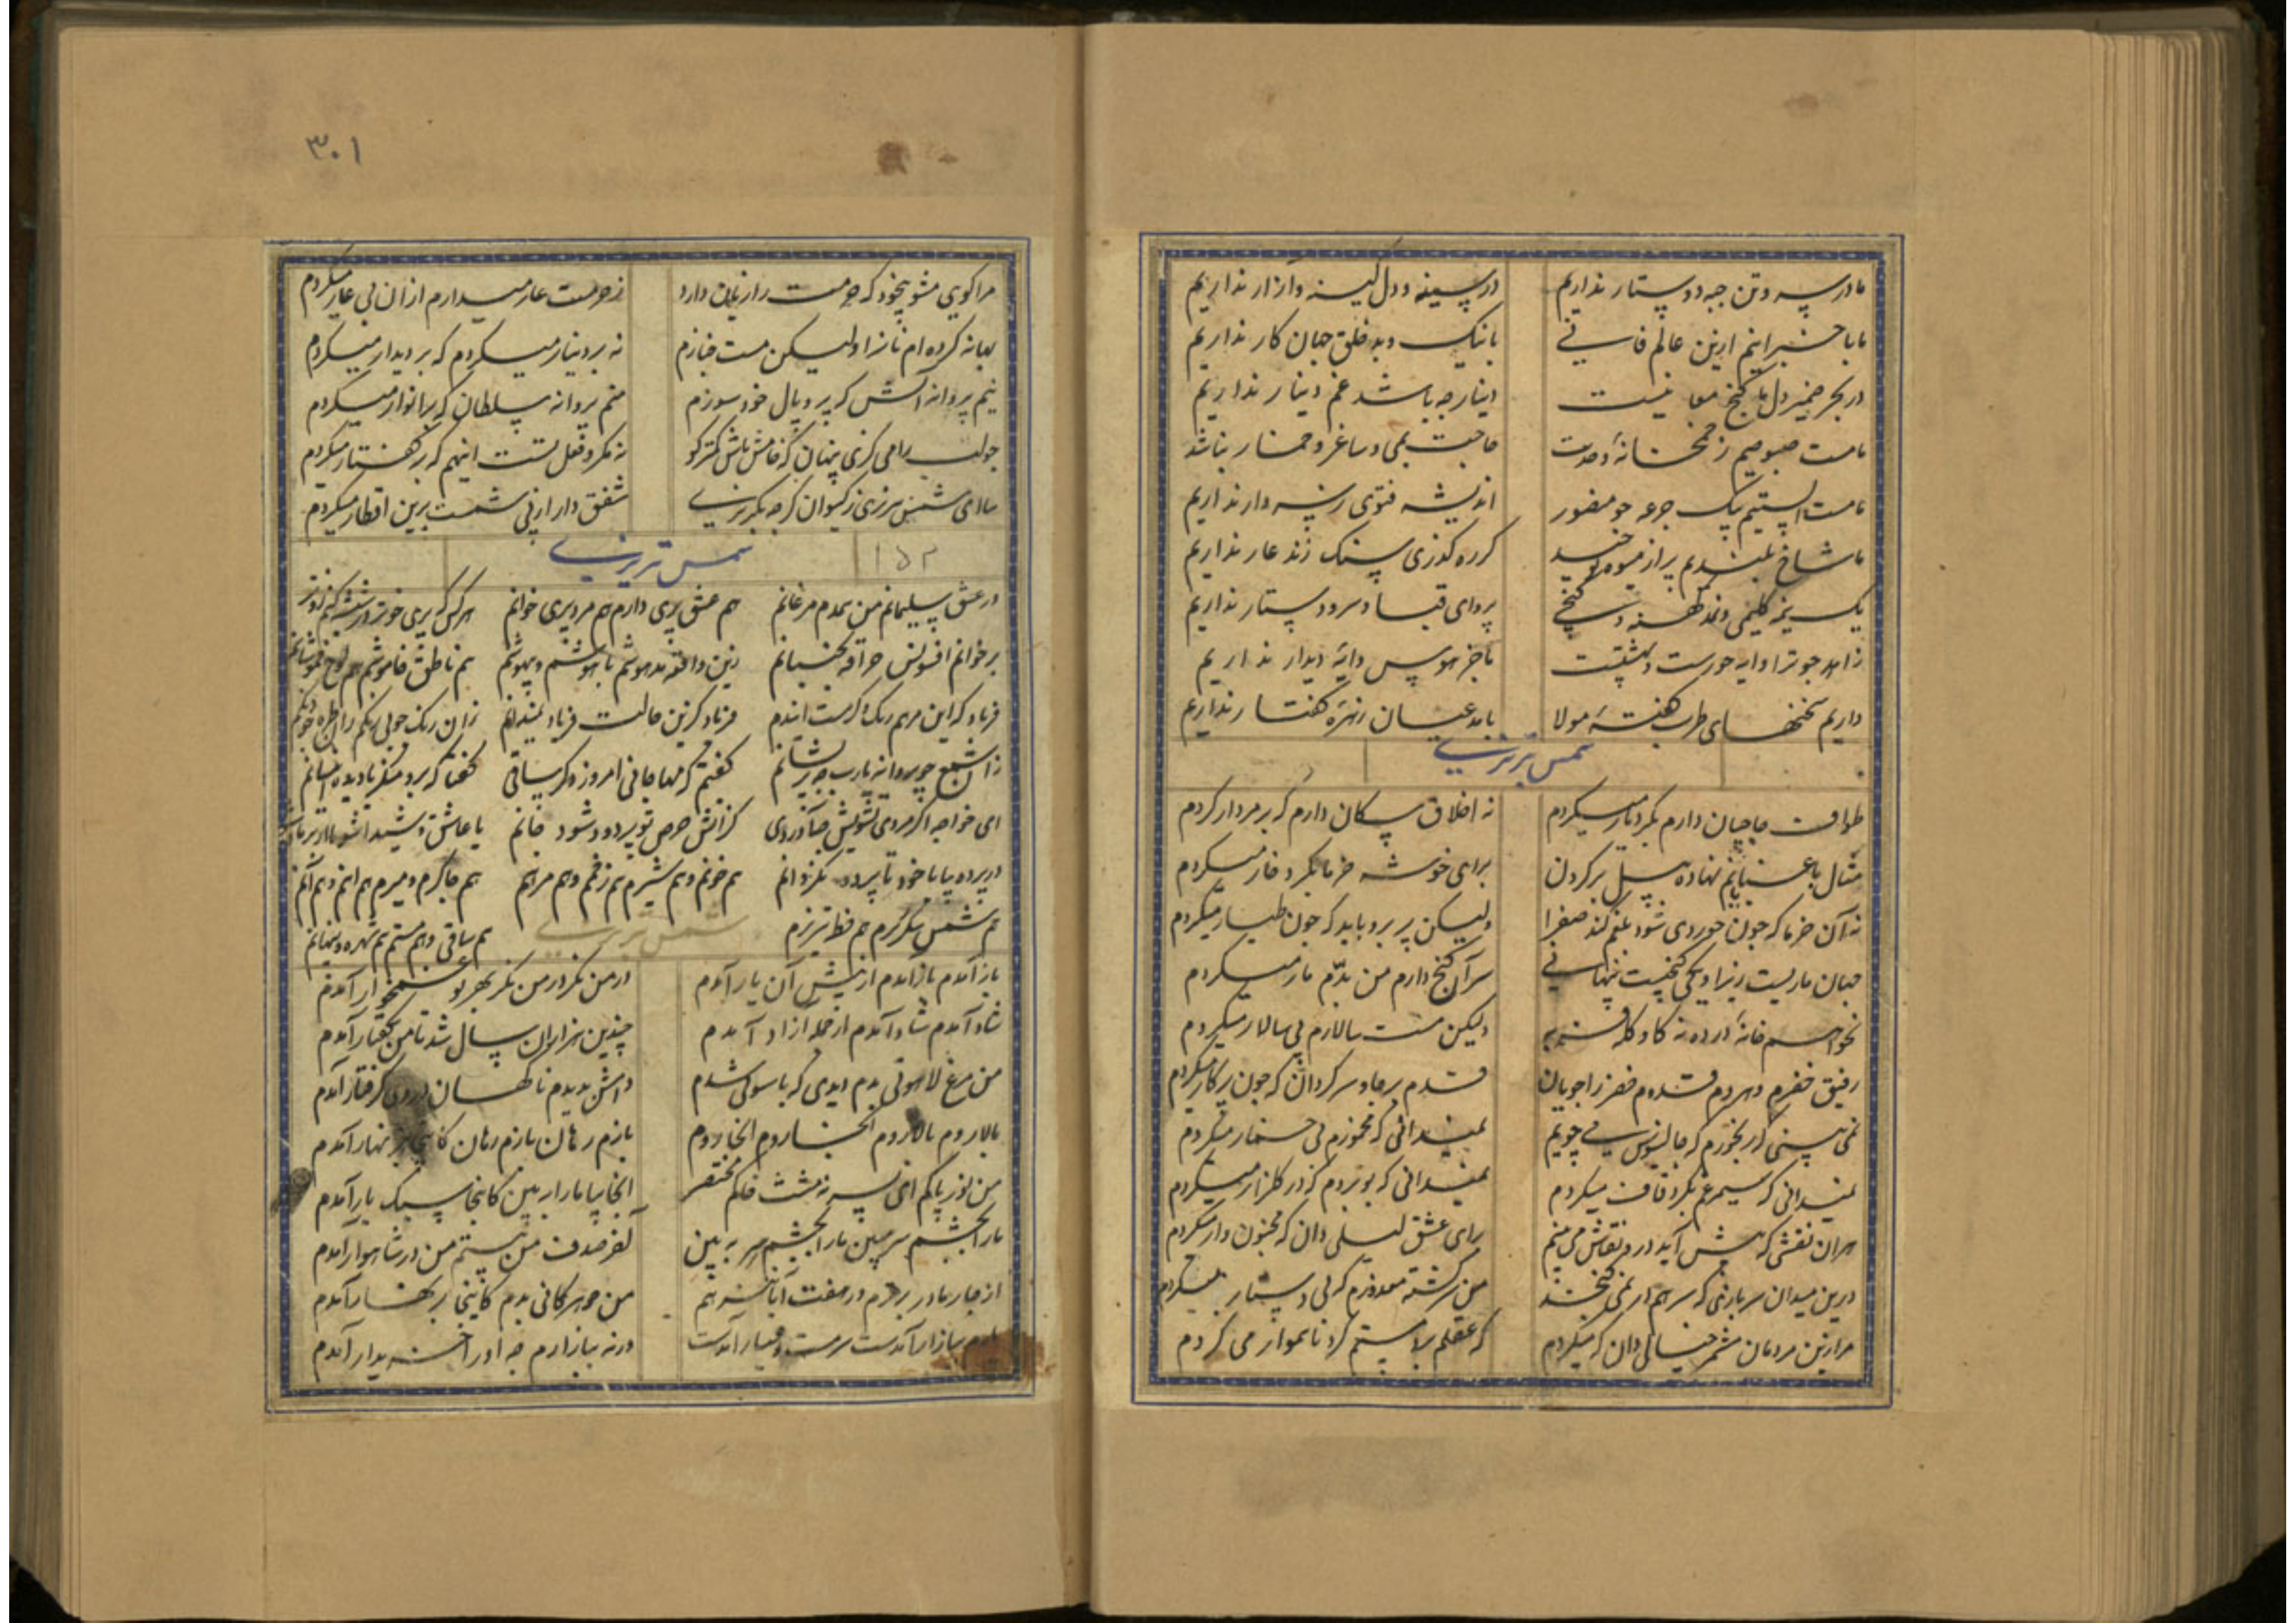 ما در سر و تن جبه و دستار نداریم در سینه و دل کینه و آزار نداریم
ما با خبرانیم ازین عالم فانی با نیک و بد خلق جهان کار نداریم
در بحر ضمیر دل ما گنج معانیست دینار چه باشد غم دینار نداریم
ما مست صبوحیم ز خمخانهٔ وحدت حاجت بمی و ساغر و خمار نباشد
ما مست الستیم بیک جرعه چو منصور اندیشه فتوی رسن دار نداریم
ما شاخ بلندیم پر از میوه کر ره گذری سنگ زند عار نداریم
یک نیمه گلیمی و نمد کهنه و کنجی پروای قبا و سر و دستار نداریم
زاهد چو ترا دایه حورست و بهشتست ما جز هوس دایه دیدار نداریم
داریم سخنهای طرب گفتهٔ مولا زهره گفتار نداریم
شمس تبریزی
طواف حاجیان دارم بگرد یار میگردم نه اخلاق سکان دارم که بر مردار کردم
مثال باغبانانم نهاده بیل بر گردن برای خوشه خرما بگرد خار میگردم
نه آن خرما که چون خوردی شود بلغم کند صفرا ولیکن پر بروباید که چون طیار میگردم
جهان ماریست زیر او یکی گنجیست پنهانی سر آن گنج دارم من بدم مار میگردم
نخواهم خانهٔ در ده نه گاو و گله فربه ولیکن مست سالارم پی سالار میگردم
رفیق خضرم و هردم قدوم خضر را جویان قدم بر جا و سرگردان که چون پرگار میگردم
نمی بینی که رنجورم که جالینوس می جویم نمیدانی که مخمورم که بی خمار میگردم
نمیدانی که سیمرغم بگرد قاف میگردم نمیدانی که بو بردم که در گلزار میگردم
هر آن نقشی که پیش آید درو نقاش می بینم برای عشق لیلی دان که مجنون وار میگردم
درین میدان سربازی که سر هم در نمی گنجد من سرگشته معذورم که بی دستار میگردم
مرا زین مردمان مشمر خیالی دان که میگردم
۳۰۱
مرا کویی مشو بیخود که مست را زیان دارد ز حرمت عار میدارم از آن بی عار میگردم
بهانه کرده ام نان را ولیکن مست خبازم نه بر دینار میگردم که بر دیدار میگردم
نیم پروانه آتش که پر و بال خود سوزم منم پروانه سلطان که بر انوار میگردم
چو لب را می گزی پنهان که خامش باش کمتر گو نه مکر و فعل تست اینهم که بر گفتار میگردم
بیا ای شمس تبریزی شفق وار ار پی شمست برین اقطار میگردم
شمس تبریزی ۱۵۲
در عشق سلیمانم من همدم مرغانم هم عشق پری دارم هم مرد پری خوانم
بر خوانم افسونش حراقه بجنبانم زین واقعه مدهوشم باهوشم و بیهوشم هم ناطق خاموشم هم لوح خموشانم
فریاد کزین حالت فریاد نمیدانم زان رنگ چو بی رنگم
زان شمع چو پروانه یارب چه پریشانم گفتم که مها جانی امروز دگر سانی گفتا که برو منکر
ای خواجه اگر مردی تشویش چه آوردی کز آتش حرص تو پر دود شود جانم یا عاشق و شیدا شو
در پرده میا با خود تا پرده نگردانم هم خونم و هم شیرم هم زخم و هم مرهم هم چاکرم و میرم هم اینم و هم آنم
هم شمس شکر ریزم هم خطهٔ تبریزم شمس تبریزی هم ساقی و هم مستم هم شهره و پنهانم
باز آمدم باز آمدم از پیش آن یار آمدم در من نگر در من نگر بهر تو غمخوار آمدم
شاد آمدم شاد آمدم از جمله آزاد آمدم چندین هزاران سال شد تا من گفتار آمدم
من مرغ لاهوتی بدم دیدی که ناسوتی شدم دامش ندیدم ناگهان در وی گرفتار آمدم
بالا روم بالا روم آنجا روم بازم رهان بازم رهان کاینجا بزنهار آمدم
من نور پاکم ای پسر نه مشت خاکم مختصر آنجا بیا ما را ببین کاینجا سبکبار آمدم
ما را بچشم سر مبین ما را بچشم سر ببین آخر صدف من نیستم من در شهوار آمدم
از چار مادر برترم در هفت آبا نیز هم من گوهر کانی بدم کاینجا بدیدار آمدم
یارم ببازار آمدست سرمست و هشیار آمدست ورنه ببازارم چه او را خریدار آمدم